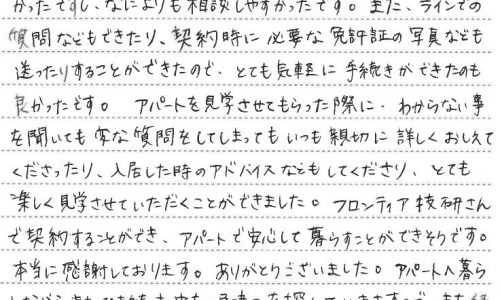 かったですし、なによりも相談しやすかったです。また、ラインでの
質問などもできたり、契約時に必要な免許証の写真なども
送ったりすることができたので、とても気軽に手続きができたのも
良かったです。 アパートを見学させてもらった際に、わからない事
を聞いても変な質問をしてしまってもいつも親切に詳しくおしえて
くださったり、入居した時のアドバイスなどもしてくださり、とても
楽しく見学させていただくことができました。フロンティア技研さん
で契約することができ、アパートで安心して暮らすことができそうです。
本当に感謝しております。ありがとうございました。アパートへ暮ら